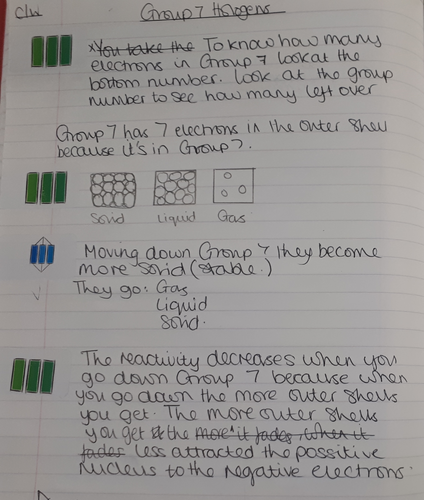 C/W
Group 7 Halogens
You take the To know how many
electrons in Group 7 look at the
bottom number. Look at the group
number to see how many left over
Group 7 has 7 electrons in the outer shell
because it's in Group 7.
Solid Liquid Gas
Moving down Group 7 they become
more solid (stable.)
They go: Gas
Liquid
Solid.
The reactivity decreases when you
go down Group 7 because when
you go down the more outer shells
you get. The more outer shells
you get the more it fades, when it
fades less attracted the possitive
nucleus to the negative electrons.